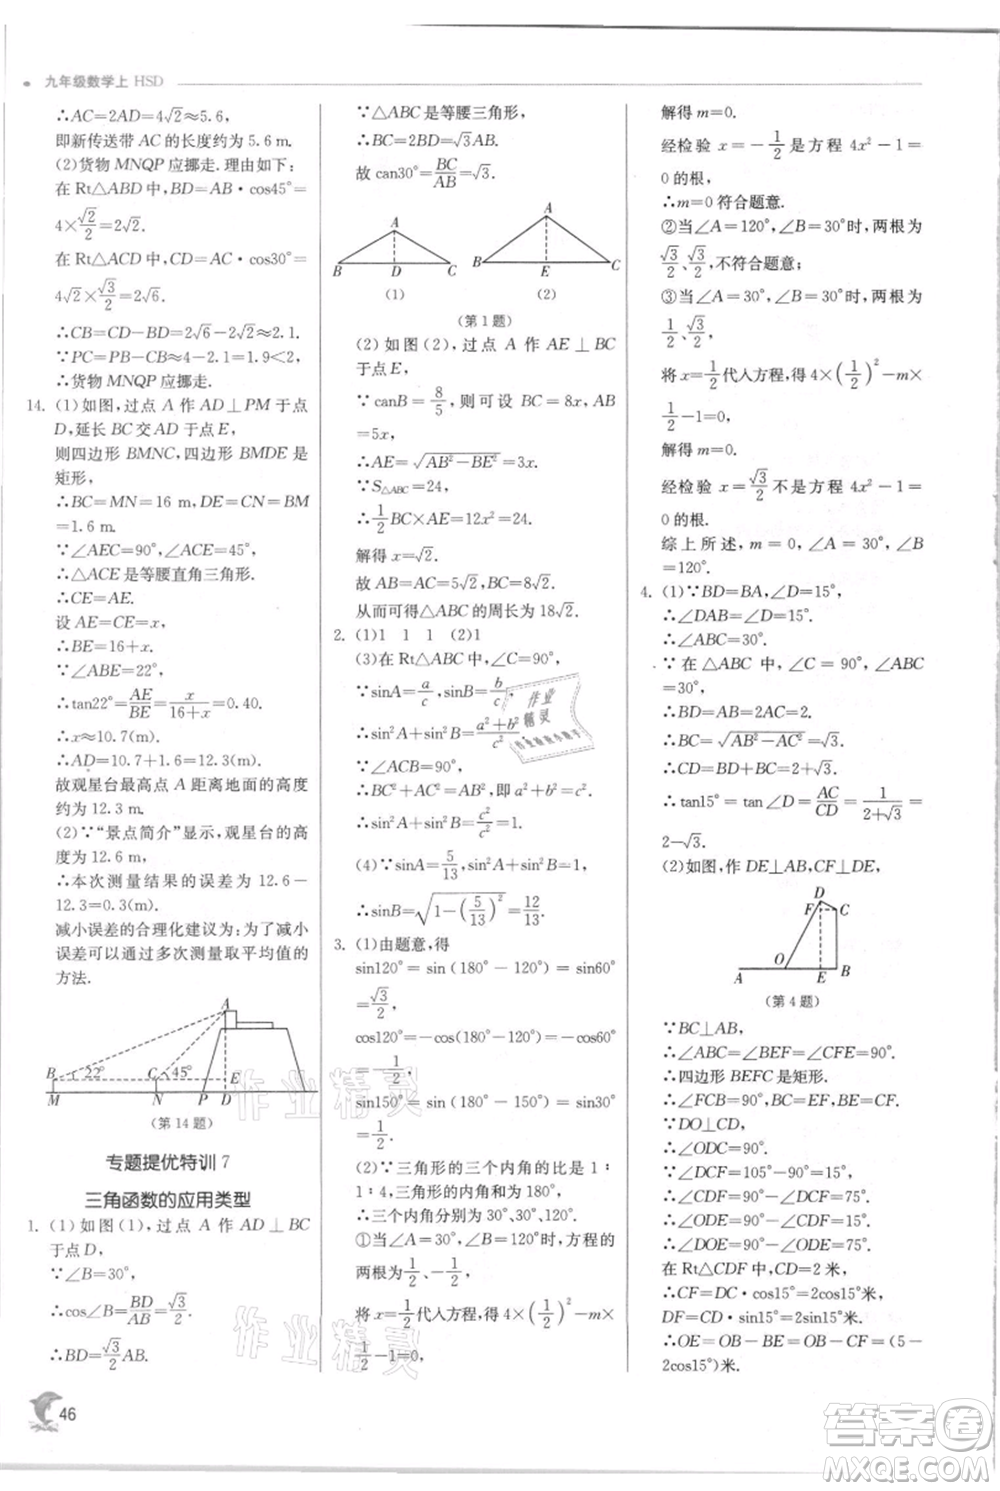 九年级数学上 HSD
∴AC=2AD=4√2≈5.6,
即新传送带 AC 的长度约为 5.6 m.
(2)货物 MNQP 应挪走. 理由如下:
在 Rt△ABD 中,BD=AB·cos45°=
4×√2/2=2√2.
在 Rt△ACD 中,CD=AC·cos30°=
4√2×√3/2=2√6.
∴CB=CD-BD=2√6-2√2≈2.1.
∵PC=PB-CB≈4-2.1=1.9<2,
∴货物 MNQP 应挪走.
14. (1)如图,过点 A 作 AD⊥PM 于点
D,延长 BC 交 AD 于点 E,
则四边形 BMNC,四边形 BMDE 是
矩形,
∴BC=MN=16 m,DE=CN=BM
=1.6 m.
∵∠AEC=90°,∠ACE=45°,
∴△ACE 是等腰直角三角形.
∴CE=AE.
设 AE=CE=x,
∴BE=16+x.
∵∠ABE=22°,
∴tan22°=AE/BE=x/(16+x)=0.40.
∴x≈10.7(m).
∴AD=10.7+1.6=12.3(m).
故观星台最高点 A 距离地面的高度
约为 12.3 m.
(2)∵“景点简介”显示,观星台的高
度为 12.6 m,
∴本次测量结果的误差为 12.6-
12.3=0.3(m).
减小误差的合理化建议为:为了减小
误差可以通过多次测量取平均值的
方法.
A
B 22° C 45° E
M N P D
(第 14 题)
专题提优特训 7
三角函数的应用类型
1. (1)如图(1),过点 A 作 AD⊥BC
于点 D,
∵∠B=30°,
∴cos∠B=BD/AB=√3/2.
∴BD=√3/2AB.
∵△ABC 是等腰三角形,
∴BC=2BD=√3AB.
故 can30°=BC/AB=√3.
A A
B D C B E C
(1) (2)
(第 1 题)
(2)如图(2),过点 A 作 AE⊥BC
于点 E,
∵canB=8/5,则可设 BC=8x,AB
=5x,
∴AE=√(AB²-BE²)=3x.
∵S△ABC=24,
∴1/2BC×AE=12x²=24.
解得 x=√2.
故 AB=AC=5√2,BC=8√2.
从而可得△ABC 的周长为 18√2.
2. (1)1 1 1 (2)1
(3)在 Rt△ABC 中,∠C=90°,
∵sinA=a/c,sinB=b/c,
∴sin²A+sin²B=(a²+b²)/c².
∵∠C=90°,
∴BC²+AC²=AB²,即 a²+b²=c².
∴sin²A+sin²B=c²/c²=1.
(4)∵sinA=5/13,sin²A+sin²B=1,
∴sinB=√(1-(5/13)²)=12/13.
3. (1)由题意,得
sin120°=sin(180°-120°)=sin60°
=√3/2,
cos120°=-cos(180°-120°)=-cos60°
=-1/2,
sin150°=sin(180°-150°)=sin30°
=1/2.
(2)∵三角形的三个内角的比是 1∶
1∶4,三角形的内角和为 180°,
∴三个内角分别为 30°、30°、120°.
①当∠A=30°,∠B=120°时,方程的
两根为1/2、-1/2,
将 x=1/2代入方程,得 4×(1/2)²-m×
1/2-1=0,
解得 m=0.
经检验 x=-1/2是方程 4x²-1=
0 的根,
∴m=0 符合题意.
②当∠A=120°,∠B=30°时,两根为
√3/2、√3/2,不符合题意;
③当∠A=30°,∠B=30°时,两根为
1/2、√3/2,
将 x=1/2代入方程,得 4×(1/2)²-m×
1/2-1=0,
解得 m=0.
经检验 x=√3/2不是方程 4x²-1=
0 的根.
综上所述,m=0,∠A=30°,∠B=
120°.
4. (1)∵BD=BA,∠D=15°,
∴∠DAB=∠D=15°.
∴∠ABC=30°.
∵在△ABC 中,∠C=90°,∠ABC=
30°,AC=1,
∴BD=AB=2AC=2.
∴BC=√(AB²-AC²)=√3.
∴CD=BD+BC=2+√3.
∴tan15°=tan∠D=AC/CD=1/(2+√3)=
2-√3.
(2)如图,作 DE⊥AB,CF⊥DE,
D
F C
A O E B
(第 4 题)
∵BC⊥AB,
∴∠ABC=∠BEF=∠CFE=90°.
∴四边形 BEFC 是矩形.
∴∠FCB=90°,BC=EF,BE=CF.
∵DO⊥CD,
∴∠ODC=90°.
∵∠DCF=105°-90°=15°,
∴∠CDF=90°-∠DCF=75°.
∴∠ODE=90°-∠CDF=15°.
∴∠DOE=90°-∠ODE=75°.
在 Rt△CDF 中,CD=2 米,
∴CF=DC·cos15°=2cos15°米,
DF=CD·sin15°=2sin15°米.
∴OE=OB-BE=OB-CF=(5-
2cos15°)米.
46
作业精灵
作业精灵
作业精灵
答案圈
MXQE.COM